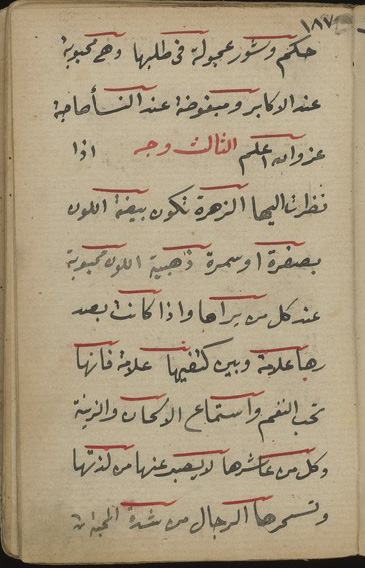 ١٨٧
حكم وستور عجولة فى طلبها وهى محبوبة
عند الاكابر ومبغوضة عند النسأ صاحبة
عز والله اعلم الثالث وجه اذا
نظرت اليها الزهرة تكون بيضة اللون
بصفرة او سمرة ذهبية اللون محبوبة
عند كل من يراها واذا كانت بصد
رها علامة وبين كتفيها علامة فانها
تحب النغم واستماع الالحان والزينة
وكل من عاشرها لا يصبر عنها من لذتها
وتسحرها الرجال من شدة